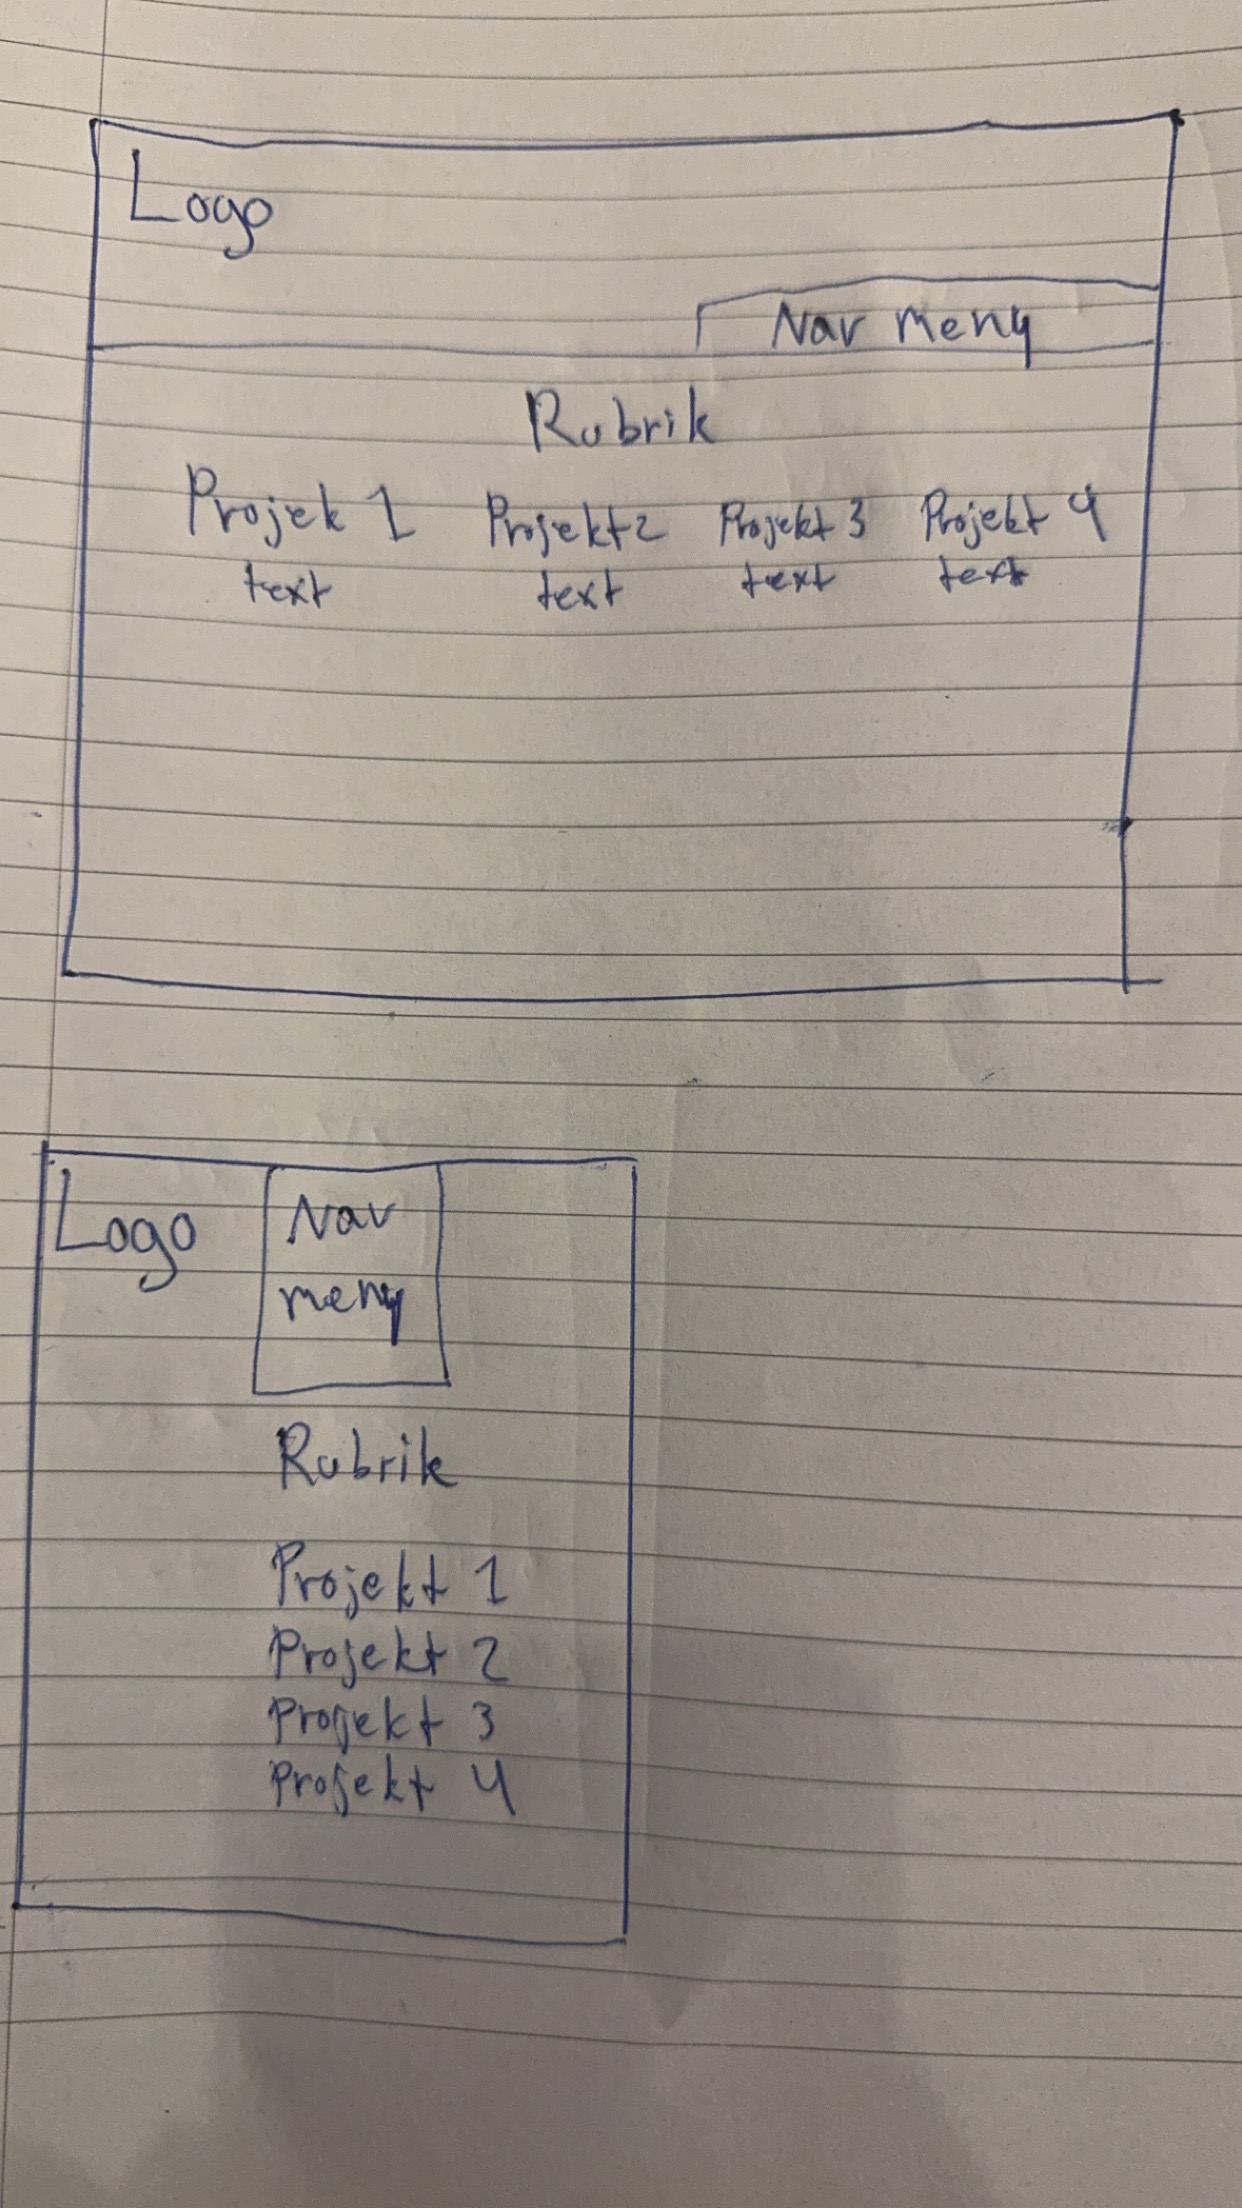 Logo
Nav meny
Rubrik
Projek 1 Projekt 2 Projekt 3 Projekt 4
text text text text
Logo
Nav
meny
Rubrik
Projekt 1
Projekt 2
Projekt 3
Projekt 4